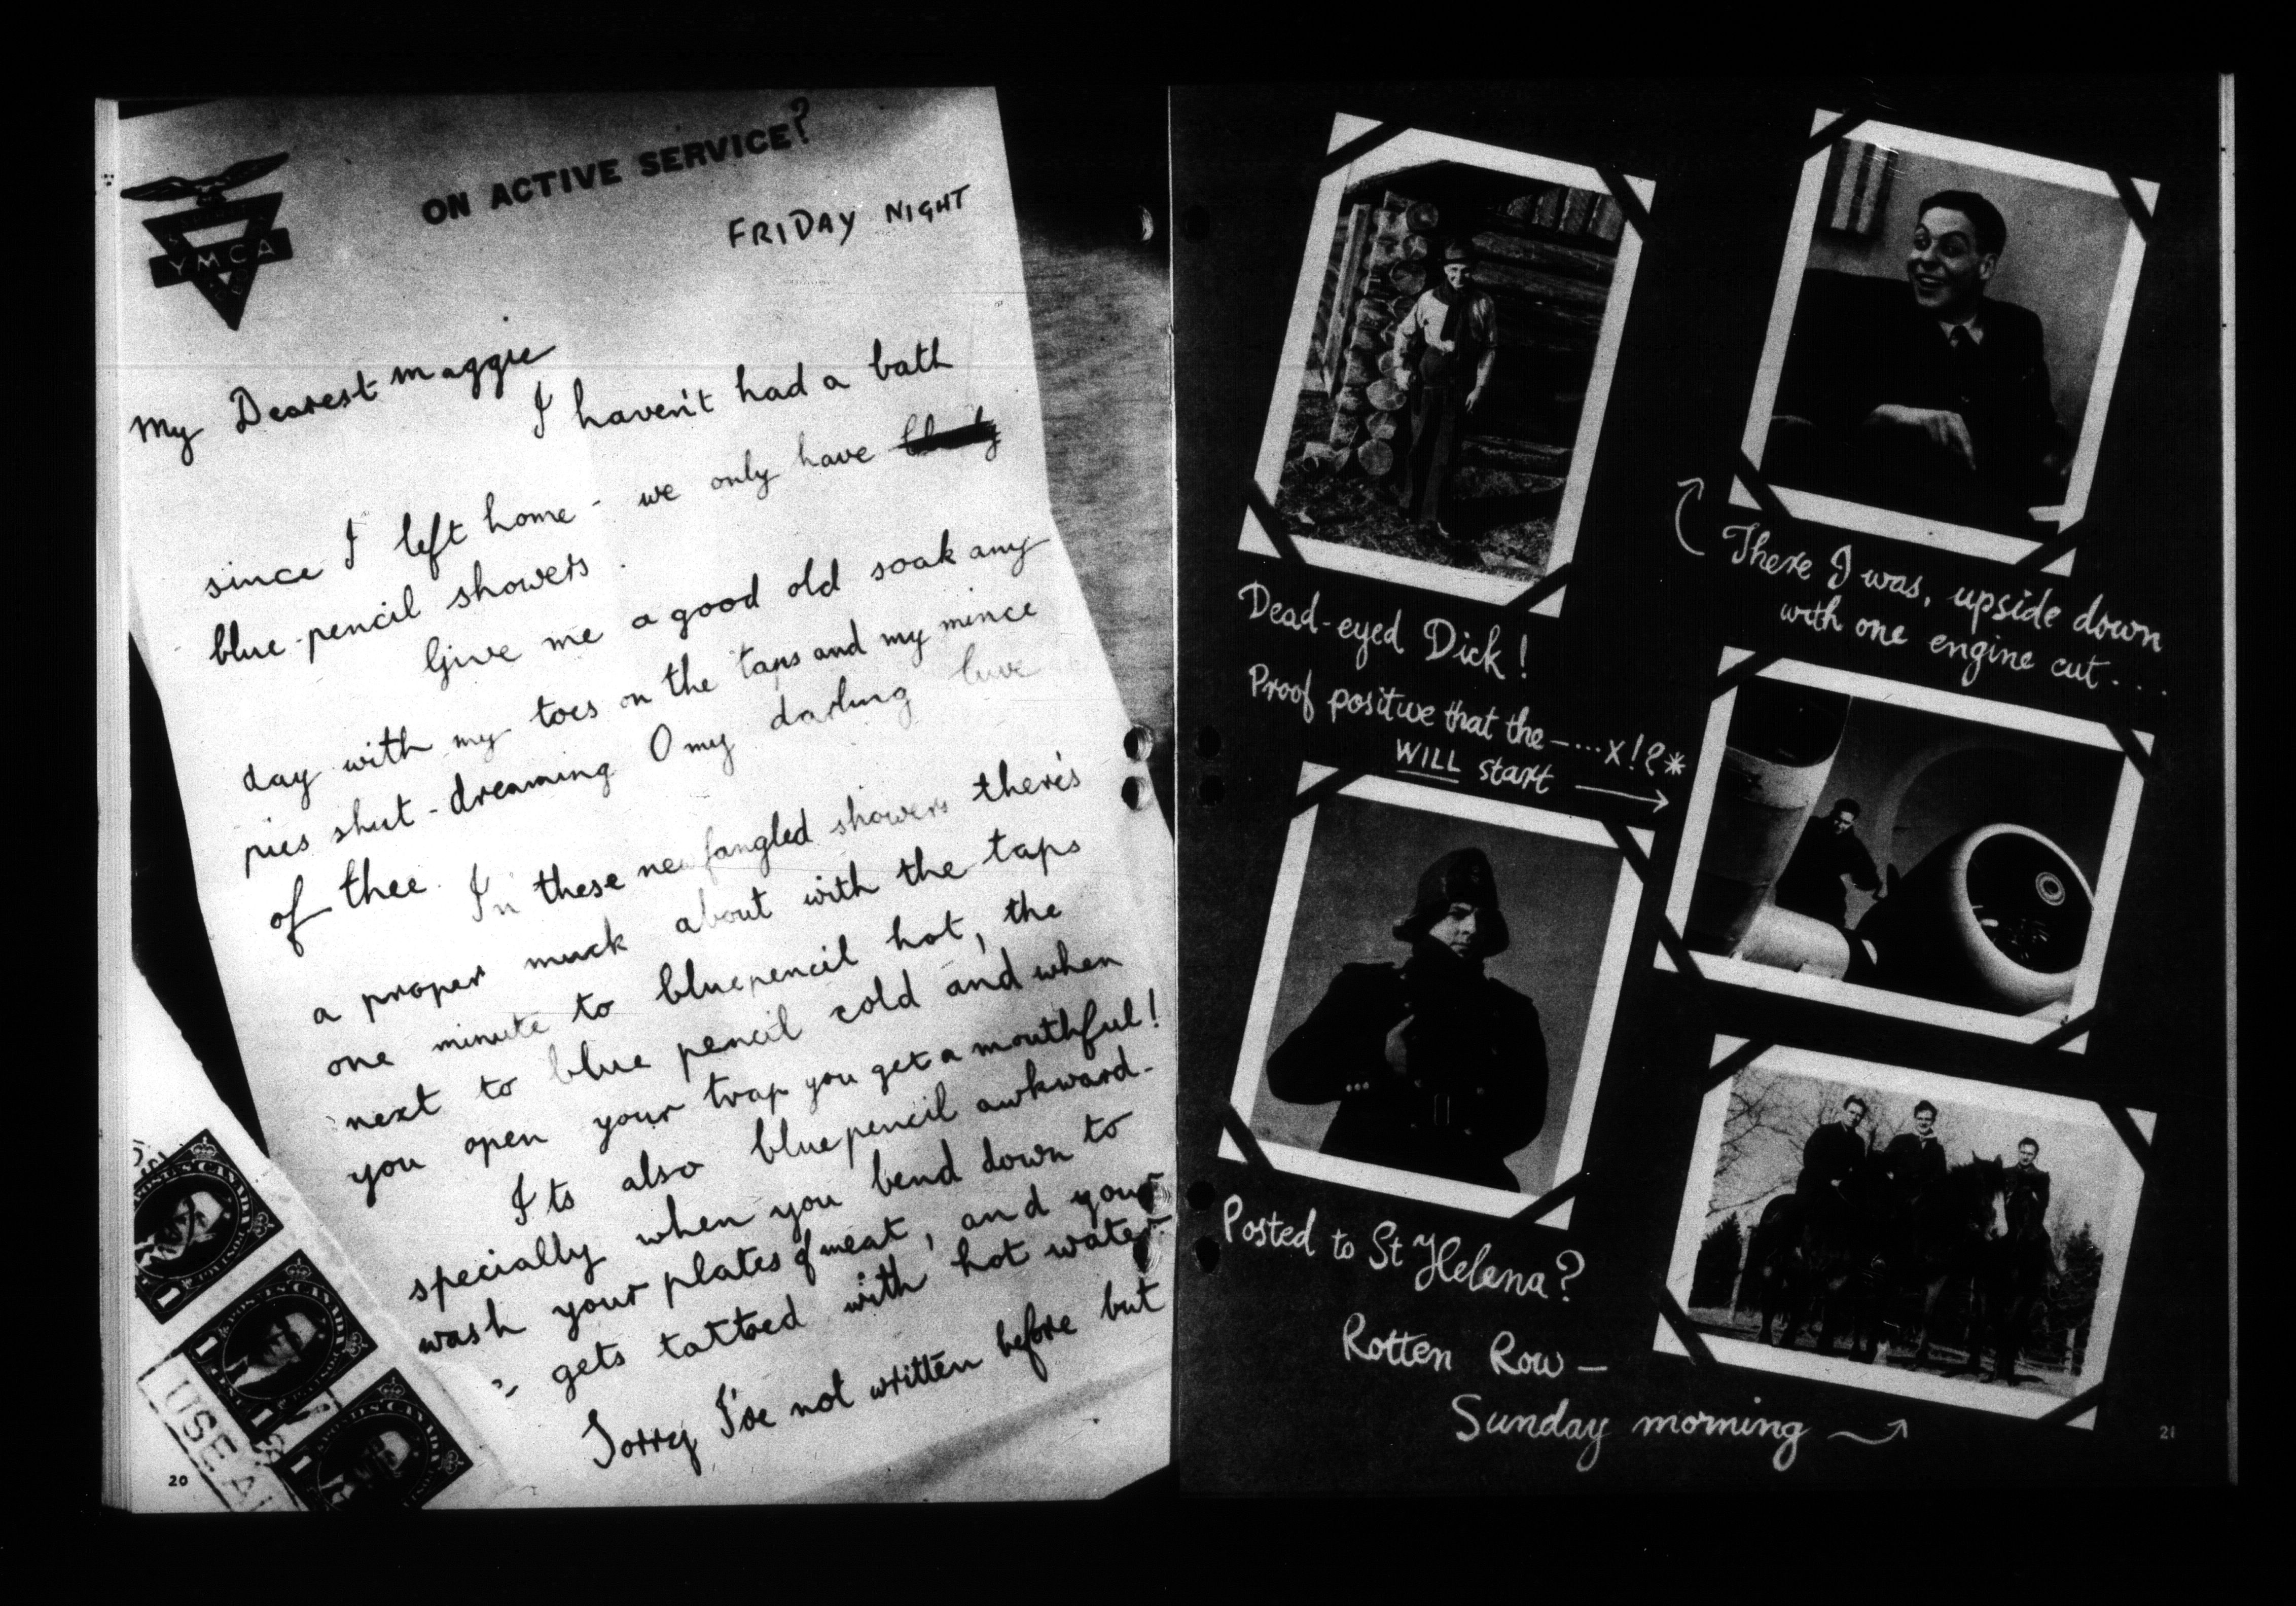 ON ACTIVE SERVICE?
YMCA
FRIDAY NIGHT
My Dearest Maggie
I haven't had a bath
since I left home - we only have
blue-pencil showers.
Give me a good old soak any
day with my toes on the taps and my mince
pies shut - dreaming O my darling luve
of thee. In these new fangled showers there's
a proper muck about with the taps
one minute to bluepencil hot, the
next to blue pencil cold and when
you open your trap you get a mouthful!
Its also bluepencil awkward-
specially when you bend down to
wash your plates of meat, and your
gets tattoed with hot water
Sorry I've not written before but
POSTES CANADA POSTAGE
1
POSTES CANADA
1
1
POSTES CANADA
1
USE AI
20
Dead-eyed Dick!
There I was, upside down
with one engine cut...
Proof positive that the -...x!?*
WILL start
Posted to St Helena?
Rotten Row -
Sunday morning
21